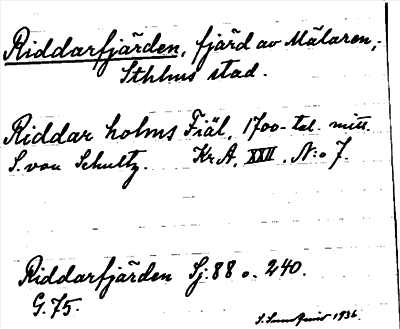 Riddarfjärden, fjärd av Mälaren,
Sthlms stad.
Riddar holms Fiäl, 1700-tal. mitt.
S. von Schultz. Kr A, XXII, N:o 7.
Riddarfjärden Sj: 88 o. 240.
G. 75.
1936